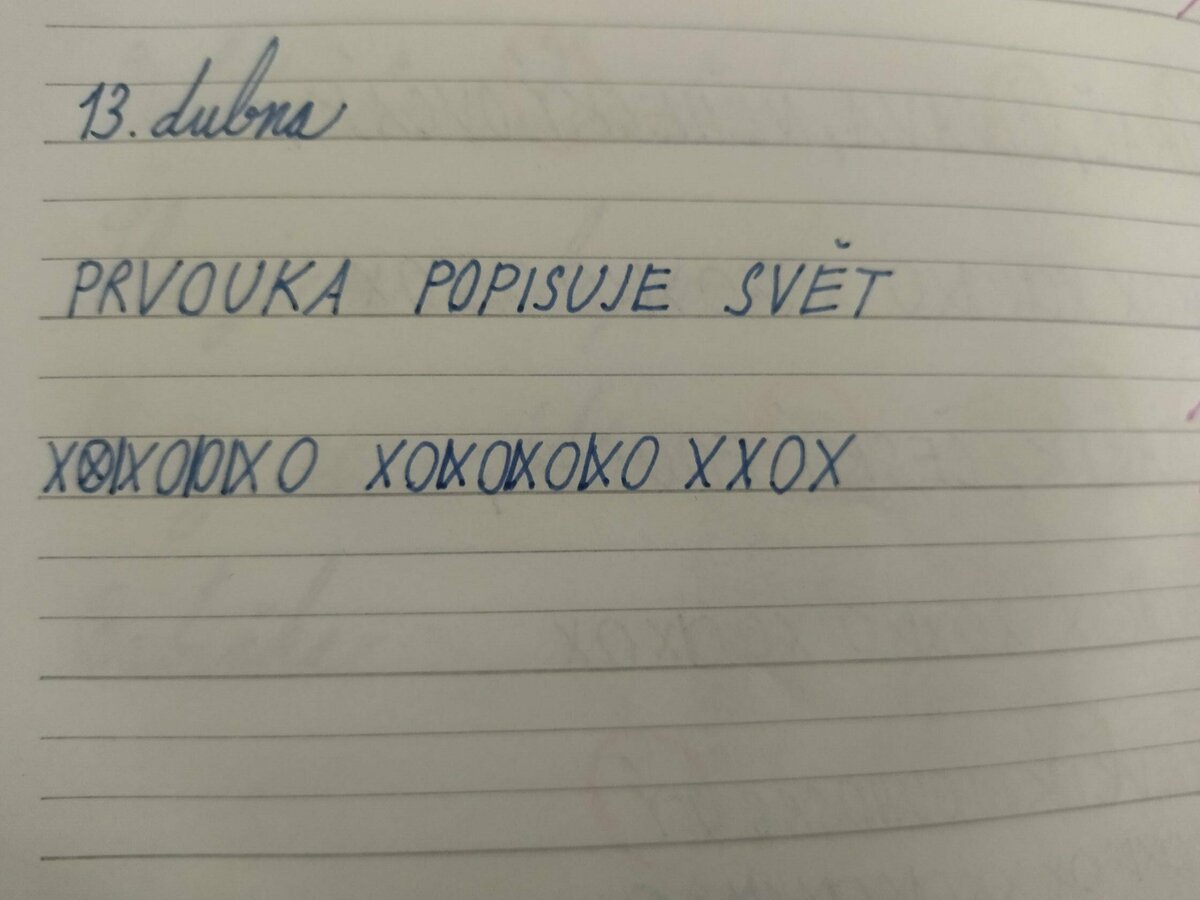 13. dubna
PRVOUKA POPISUJE SVĚT
XXXOOXO XOXOXOXO XXOX